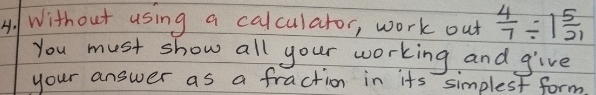 4. Without using a calculator, work out 4/7 ÷ 1 5/21
You must show all your working and give
your answer as a fraction in its simplest form.